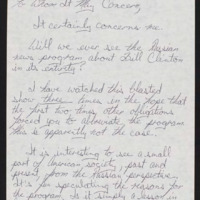 To Whom It May Concern,
It certainly concerns me.
Will we ever see the Russian
news program about Bill Clinton
in its entirity?
I have watched this blasted
show three times in the hope that
the first two times other obligations
forced you to abbreviate the program
this is apparently not the case.
It is interesting to see a small
part of American society, past and
present, from the Russian perspective.
It's for speculating the reasons for
the program. Is it simply a lesson in